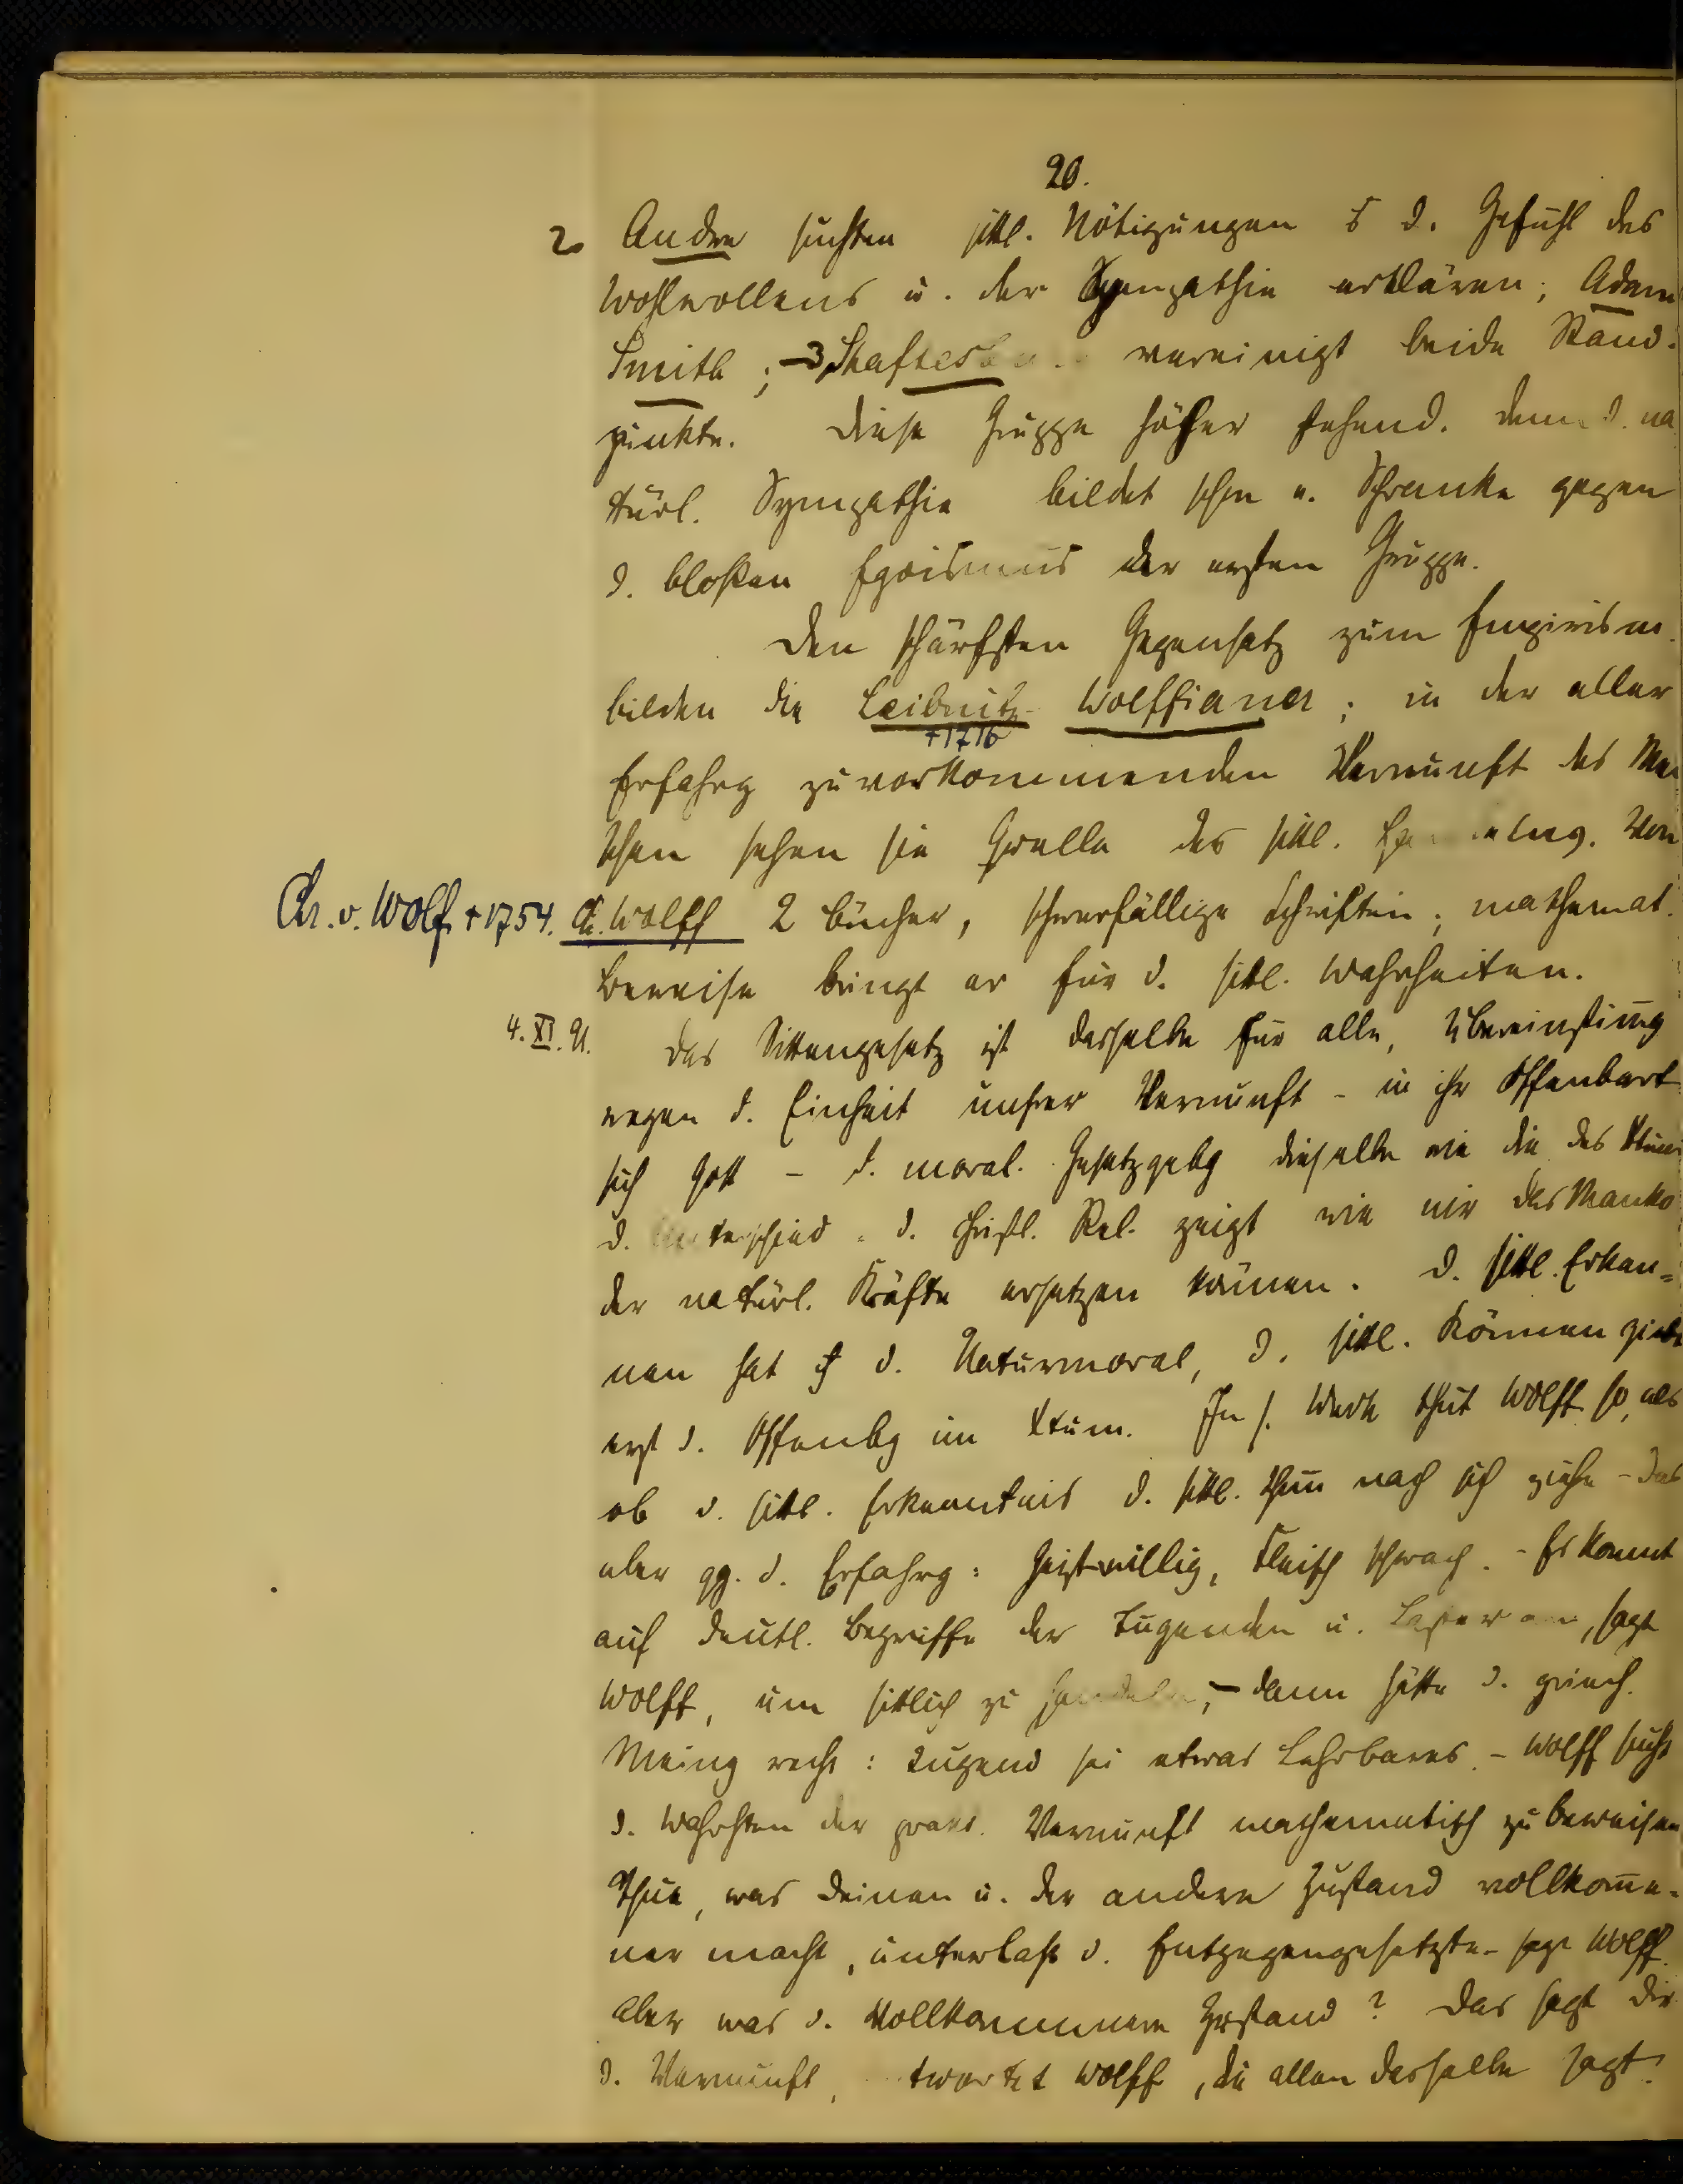 20.
2 Andre suchten sittl. Nötigungen d. Gefühl des
Wohlwollens u. der Sympathie erklären; Adam
Smith; 3 Shaftesb vereinigt beide Stand-
punkte. Diese Gruppe höher stehend. denn d. na
türl. Sympathie bildet schon e. Schranke gegen
d. bloßen Egoismus der ersten Gruppe.
Den schärfsten Gegensatz zum Empirism.
bilden die Leibnitz- Wolffianer; in der aller
+1716
Erfahrg zuvorkommenden Vernunft des Men
schen sehen sie Quelle des sittl. Von
Chr. v. Wolf +1754. Ch. Wolff 2 Bücher, schwerfällige Schriften; mathemat.
Beweise bringt er für d. sittl. Wahrheiten.
4. XI. 91. Das Sittengesetz ist dasselbe für alle, Übereinstimg
wegen d. Einheit unsrer Vernunft - in ihr offenbart
sich Gott - d. moral. Gesetzgebg dieselbe wie die des Xtums
d. Unterschied: d. christl. Rel. zeigt wie wir das Manko
der natürl. Kräfte ersetzen können. D. sittl. Erken=
nen hat d. Naturmoral, d. sittl. Können giebt
erst d. Offenbg im Xtum. In s. Werk thut Wolff so, als
ob d. sittl. Erkenntnis d. sittl. Thun nach sich ziehe - das
aber gg. d. Erfahrg: Geist willig, Fleisch schwach. - Es kommt
auf deutl. Begriffe der Tugenden u. Laster an, sagt
Wolff, um sittlich zu handeln, - dann hätte d. griech.
Meing recht: Tugend sei etwas Lehrbares. - Wolff sucht
d. Wahrhten der prakt. Vernunft mathematisch zu beweisen
Thue, was deinen u. der andern Zustand vollkomme-
ner macht, unterlaß d. Entgegengesetzte - sagt Wolff.
Aber was d. vollkommnere Zustand? Das sagt dir
d. Vernunft, antwortet Wolff, die allen dasselbe sagt.